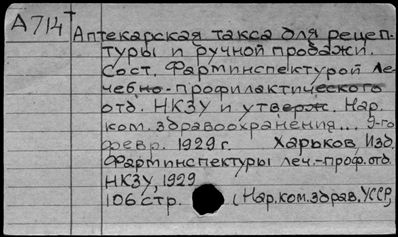 А714
Аптекарская такса для рецеп-
туры и ручной продажи.
Сост. Фарминспектурой Ле-
чебно-профилактического
отд. НКЗУ и утверж. Нар.
ком. здравоохранения... 9-го
февр. 1929 г. Харьков, Изд.
Фарминспектуры леч.-проф. отд.
НКЗУ, 1929
106 стр. (Нар.ком.здрав. УССР,